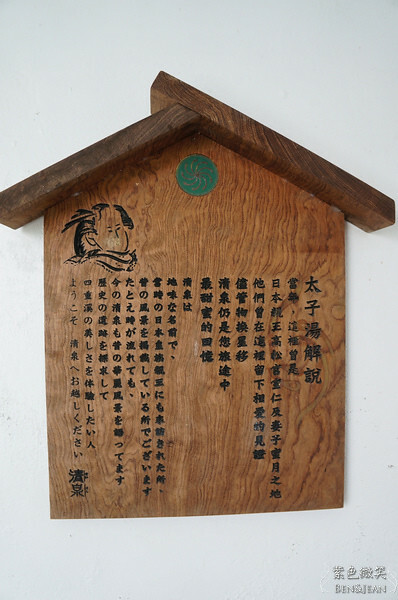 太子湯解説
當年，這裡曾是
日本親王高松宮宣仁及妻子蜜月之地
他們曾在這裡留下相愛的見證
儘管物換星移
清泉仍是您旅途中
最甜蜜的回憶
清泉は
地味な名前で、
當時の日本皇族親王にも来訪された所、
昔の風景を掲載している所でございます
たとえ時が流れても、
今の清泉も昔の華麗風景を語ってます
歴史の遺跡を探求して
四重溪の美しさを体驗したい人
ようこそ 清泉へお越しください
清泉
紫色微笑
BEN&JEAN